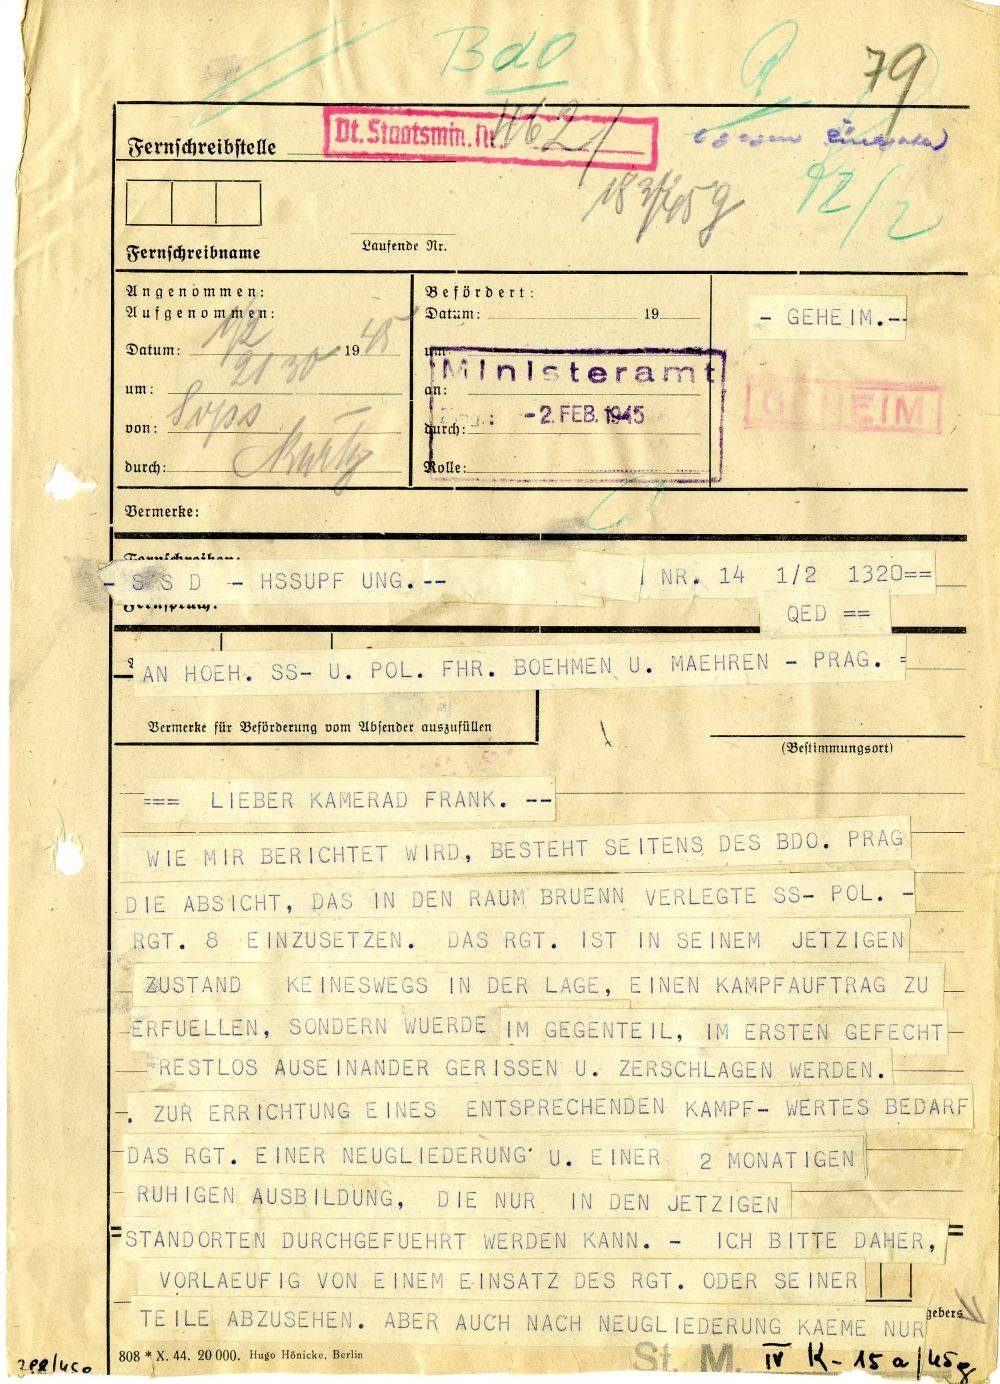 BdO
79
Dt. Staatsmin. Nr.
Fernschreibstelle
12/2
Fernschreibname
Laufende Nr.
Angenommen:
Aufgenommen:
Datum: 1/2 1945
um: 2130
von:
durch:
Befördert:
Datum: 19
um:
an:
durch:
Rolle:
Ministeramt
- 2. FEB. 1945
- GEHEIM.--
GEHEIM
Vermerke:
Fernschreiben:
- S S D - HSSUPF UNG. -- NR. 14 1/2 1320==
Fernspruch:
QED ==
AN HOEH. SS- U. POL. FHR. BOEHMEN U. MAEHREN - PRAG. =
Vermerke für Beförderung vom Absender auszufüllen
(Bestimmungsort)
=== LIEBER KAMERAD FRANK. --
WIE MIR BERICHTET WIRD, BESTEHT SEITENS DES BDO. PRAG
DIE ABSICHT, DAS IN DEN RAUM BRUENN VERLEGTE SS- POL. -
RGT. 8 EINZUSETZEN. DAS RGT. IST IN SEINEM JETZIGEN
ZUSTAND KEINESWEGS IN DER LAGE, EINEN KAMPFAUFTRAG ZU
ERFUELLEN, SONDERN WUERDE IM GEGENTEIL, IM ERSTEN GEFECHT
RESTLOS AUSEINANDER GERISSEN U. ZERSCHLAGEN WERDEN.
. ZUR ERRICHTUNG EINES ENTSPRECHENDEN KAMPF- WERTES BEDARF
DAS RGT. EINER NEUGLIEDERUNG U. EINER 2 MONATIGEN
RUHIGEN AUSBILDUNG, DIE NUR IN DEN JETZIGEN
STANDORTEN DURCHGEFUEHRT WERDEN KANN. - ICH BITTE DAHER,
VORLAEUFIG VON EINEM EINSATZ DES RGT. ODER SEINER
TEILE ABZUSEHEN. ABER AUCH NACH NEUGLIEDERUNG KAEME NUR
gebers
808 * X. 44. 20 000. Hugo Hönicke, Berlin
St. M. IV K - 15 a / 45 g